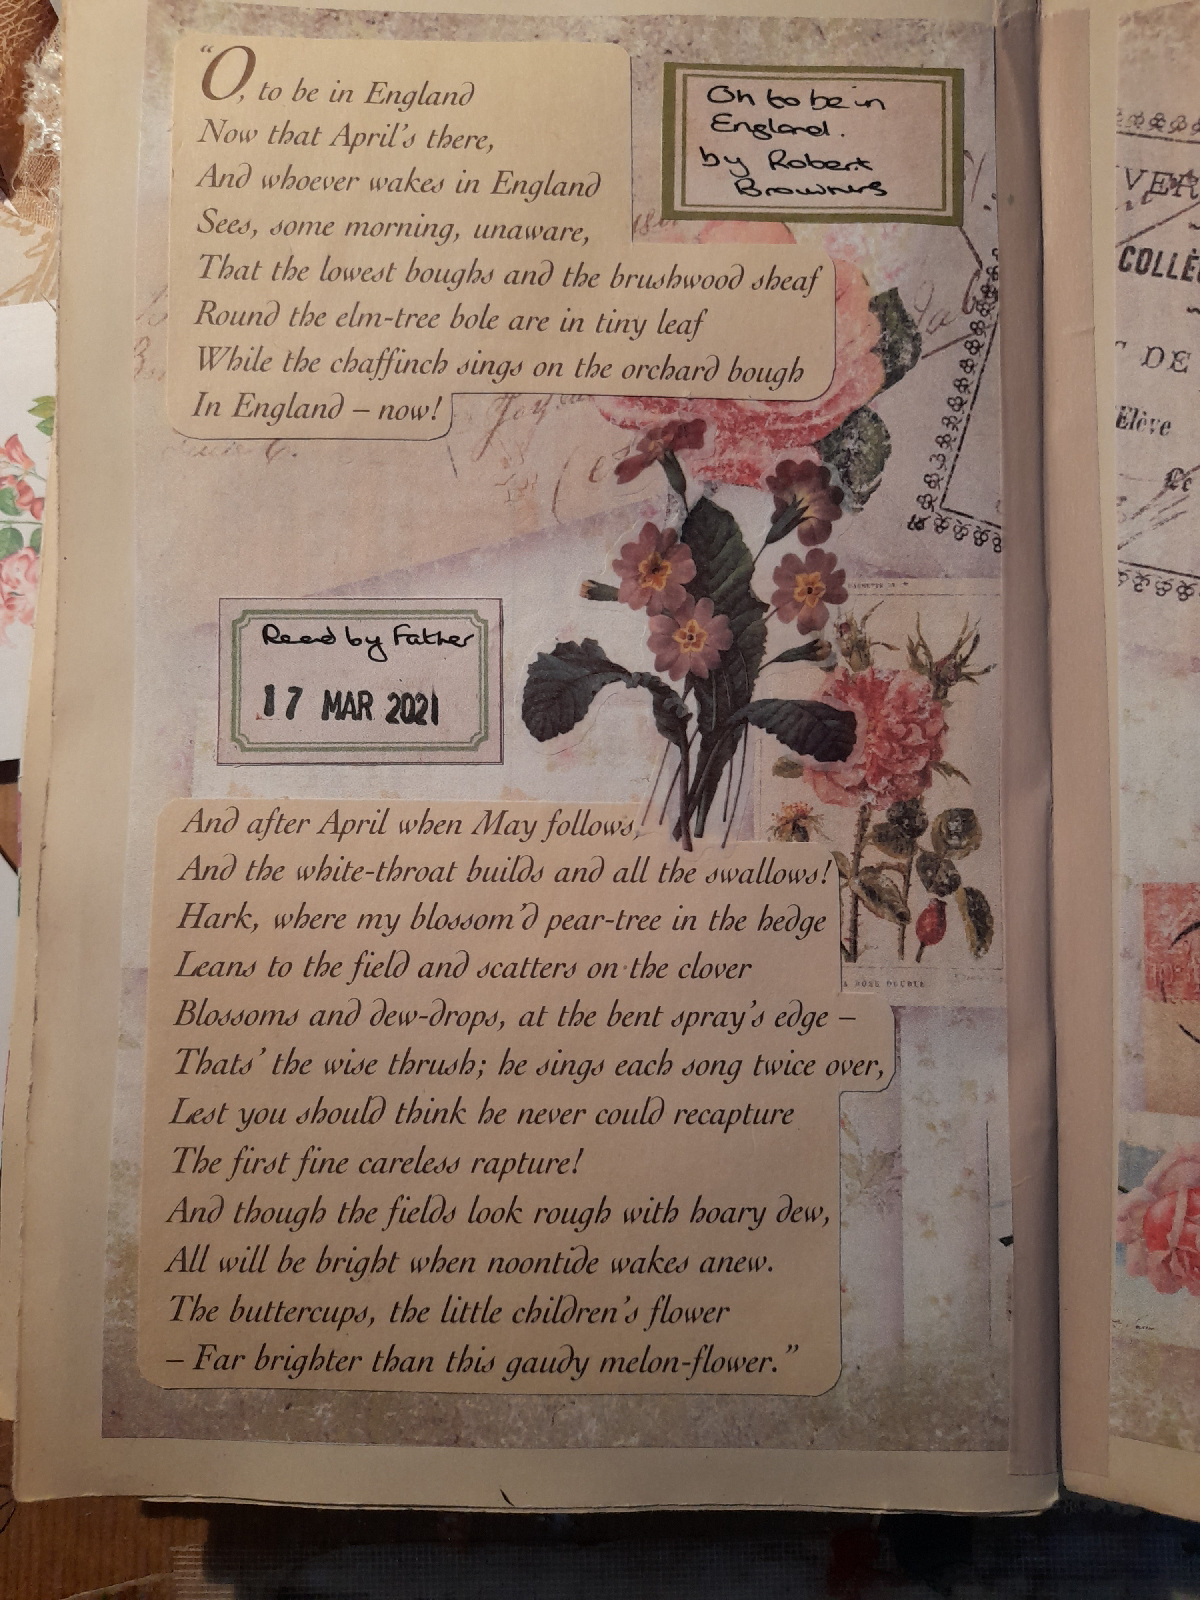 “O, to be in England
Now that April’s there,
And whoever wakes in England
Sees, some morning, unaware,
That the lowest boughs and the brushwood sheaf
Round the elm-tree bole are in tiny leaf
While the chaffinch sings on the orchard bough
In England – now!
Oh to be in
England.
by Robert
Read by Father
17 MAR 2021
And after April when May follows,
And the white-throat builds and all the swallows!
Hark, where my blossom’d pear-tree in the hedge
Leans to the field and scatters on the clover
Blossoms and dew-drops, at the bent spray’s edge –
Thats’ the wise thrush; he sings each song twice over,
Lest you should think he never could recapture
The first fine careless rapture!
And though the fields look rough with hoary dew,
All will be bright when noontide wakes anew.
The buttercups, the little children’s flower
– Far brighter than this gaudy melon-flower.”
VER
COLLÈ
DE
Elève